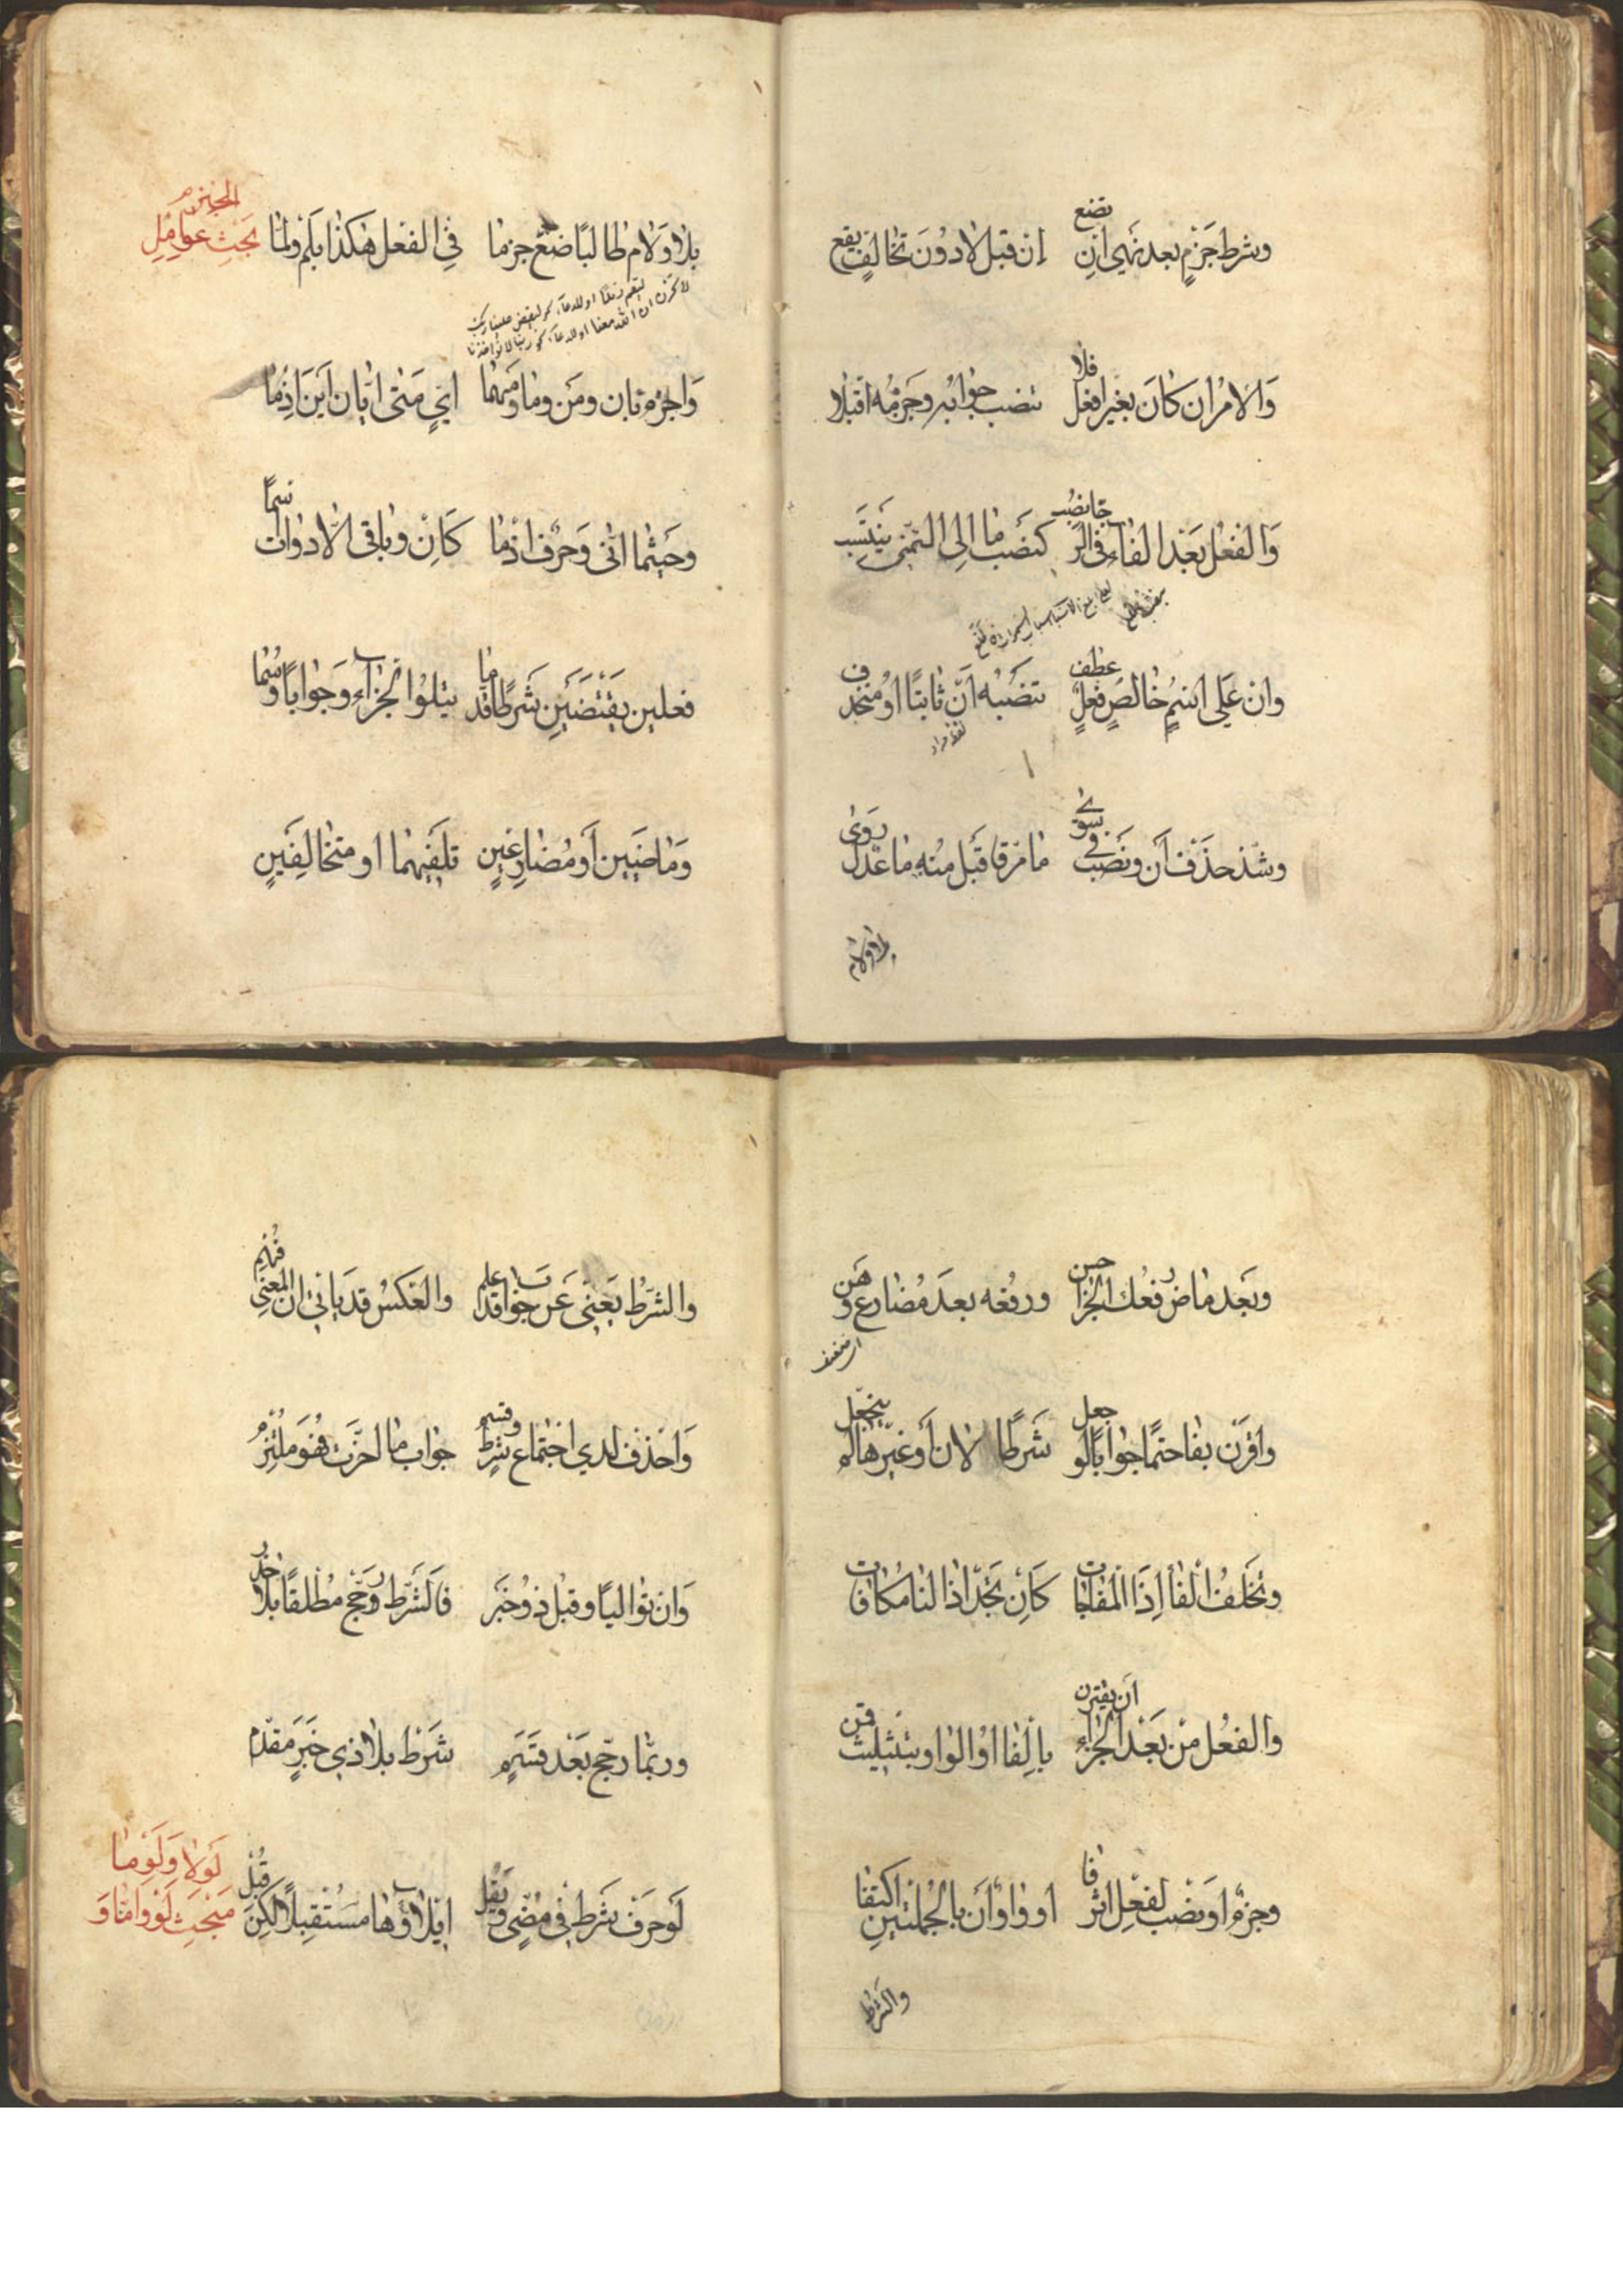 وشرط جَزْمٍ بعد نهى ان تضع   إن قبل لا دون تخالفٍ يقع
والامر ان كان بغير افعل فلا   تنصب جوابه وجزمه اقبلا
والفعل بعد الفاء فى الرجا نصب   كنصب ما الى التمنى ينتسب
وان على اسم خالص فعل عطف   تنصبه أن ثابتا او منحذف
لفظ مراد
وشذ حذف أن ونصب فى سوى   ما مر فاقبل منه ما عدل روى
بلا ولام
بلا ولام طالبا ضع جزما   في الفعل هكذا بلم ولما
بحث عوامل الجزم
واجزم بان ومن وما ومهما   اي متى ايان اين اذما
وحيثما انى وحرف اذما   كان وباقى الادوات سما
فعلين يقتضين شرط قدما   يتلوا الجزاء وجوابا وسما
وماضيين أو مضارعين   تلفيهما او متخالفين
وبعد ماض رفعك الجزا حسن   ورفعه بعد مضارع وهن
واقرن بفا حتما جوابا لو جعل   شرطا لان أو غيرها لم ينجعل
وتخلف الفا إذا المفاجات   كان تجد اذا لنا مكافات
والفعل من بعد الجزاء ان يقترن   بالفا او الواو بتثليث قمن
وجزم او نصب لفعل اثر فا   او واو أن بالجملتين اكتنفا
والشرط
والشرط يغنى عن جواب قد علم   والعكس قد ياتي ان المعنى فهم
واحذف لدي اجتماع شرط وقسم   جواب ما اخرت فهو ملتزم
وان تواليا وقبل ذو خبر   فالشرط رجح مطلقا بلا حذر
وربما رجح بعد قسم   شرط بلا ذي خبر مقدم
لو حرف شرط في مضى ويقل   ايلاؤها مستقبلا لكن قبل
مبحث لو واما و لولا ولوما